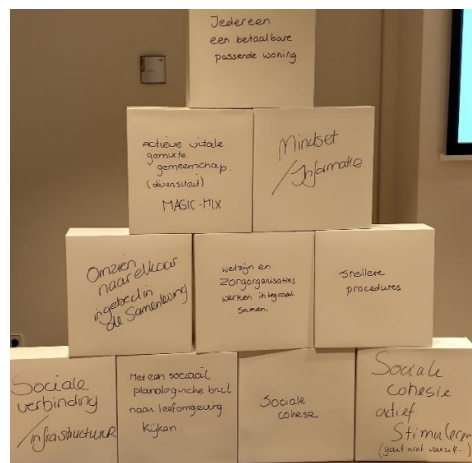 Jedereen
een betaalbare
passende woning
Actieve vitale
gemixte
gemeenschap.
(diversiteit)
MAGIC-MIX
Mindset
/Informatie
Omzien
naar elkaar
ingebed in
de Samenleving
welzijn en
zorgorganisaties
werken integraal
samen.
snellere
procedures
Sociale
verbinding
/infrastructuur
Met een sociaal
planologische bril
naar leefomgeving
kijken.
Sociale
cohesie
Sociale
cohesie
actief
Stimuleren
(gaat niet vanzelf...)